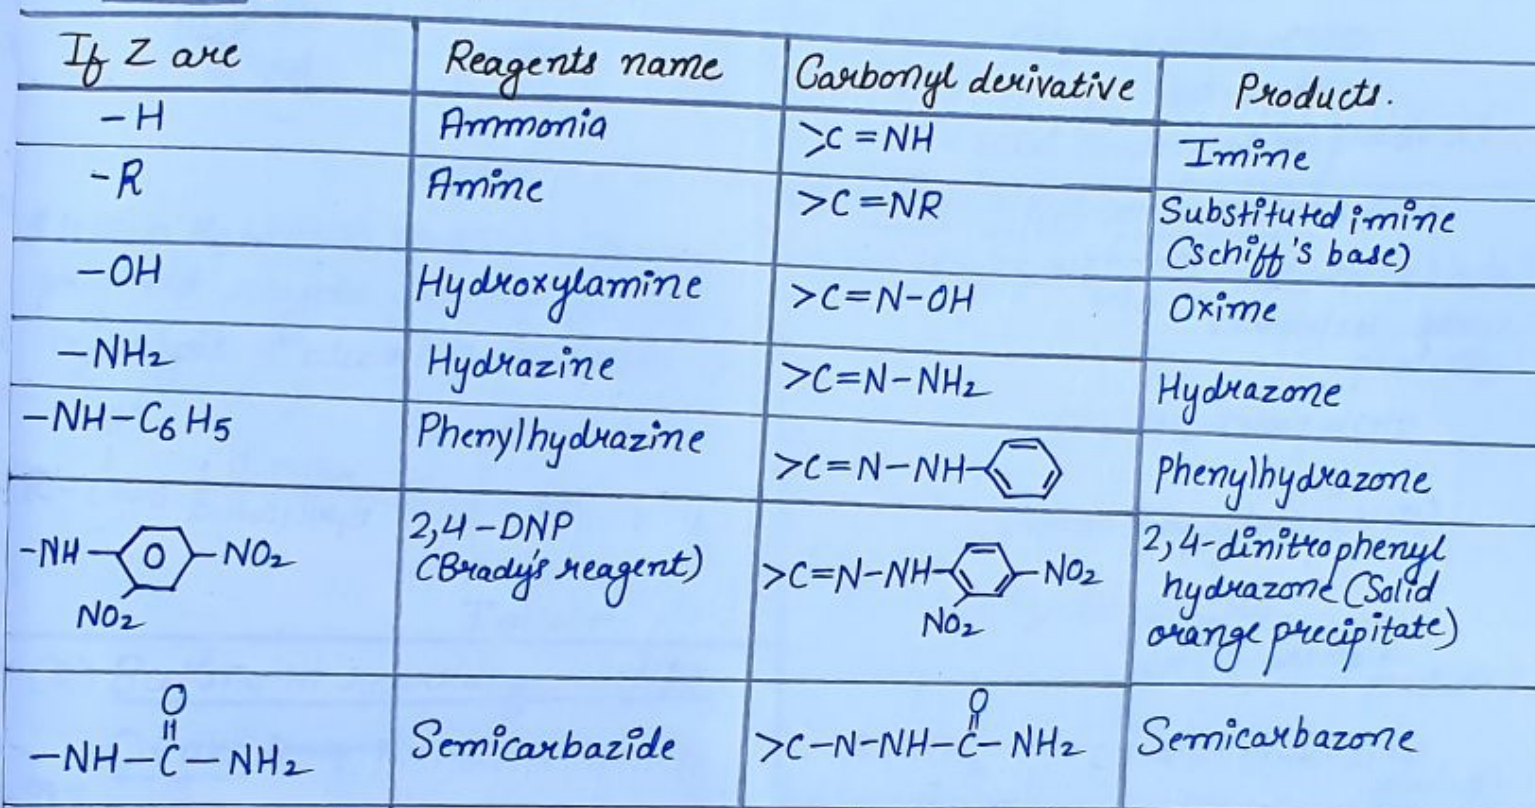 If Z are Reagents name Carbonyl derivative Products.
-H Ammonia >C=NH Imine
-R Amine >C=NR Substituted imine
(schiff's base)
-OH Hydroxylamine >C=N-OH Oxime
-NH2 Hydrazine >C=N-NH2 Hydrazone
-NH-C6H5 Phenylhydrazine >C=N-NH- Phenylhydrazone
-NH- O -NO2
NO2
2,4-DNP
(Brady's reagent)
>C=N-NH- -NO2
NO2
2,4-dinitrophenyl
hydrazone (Solid
orange precipitate)
O
-NH-C-NH2
Semicarbazide
O
>C-N-NH-C-NH2
Semicarbazone